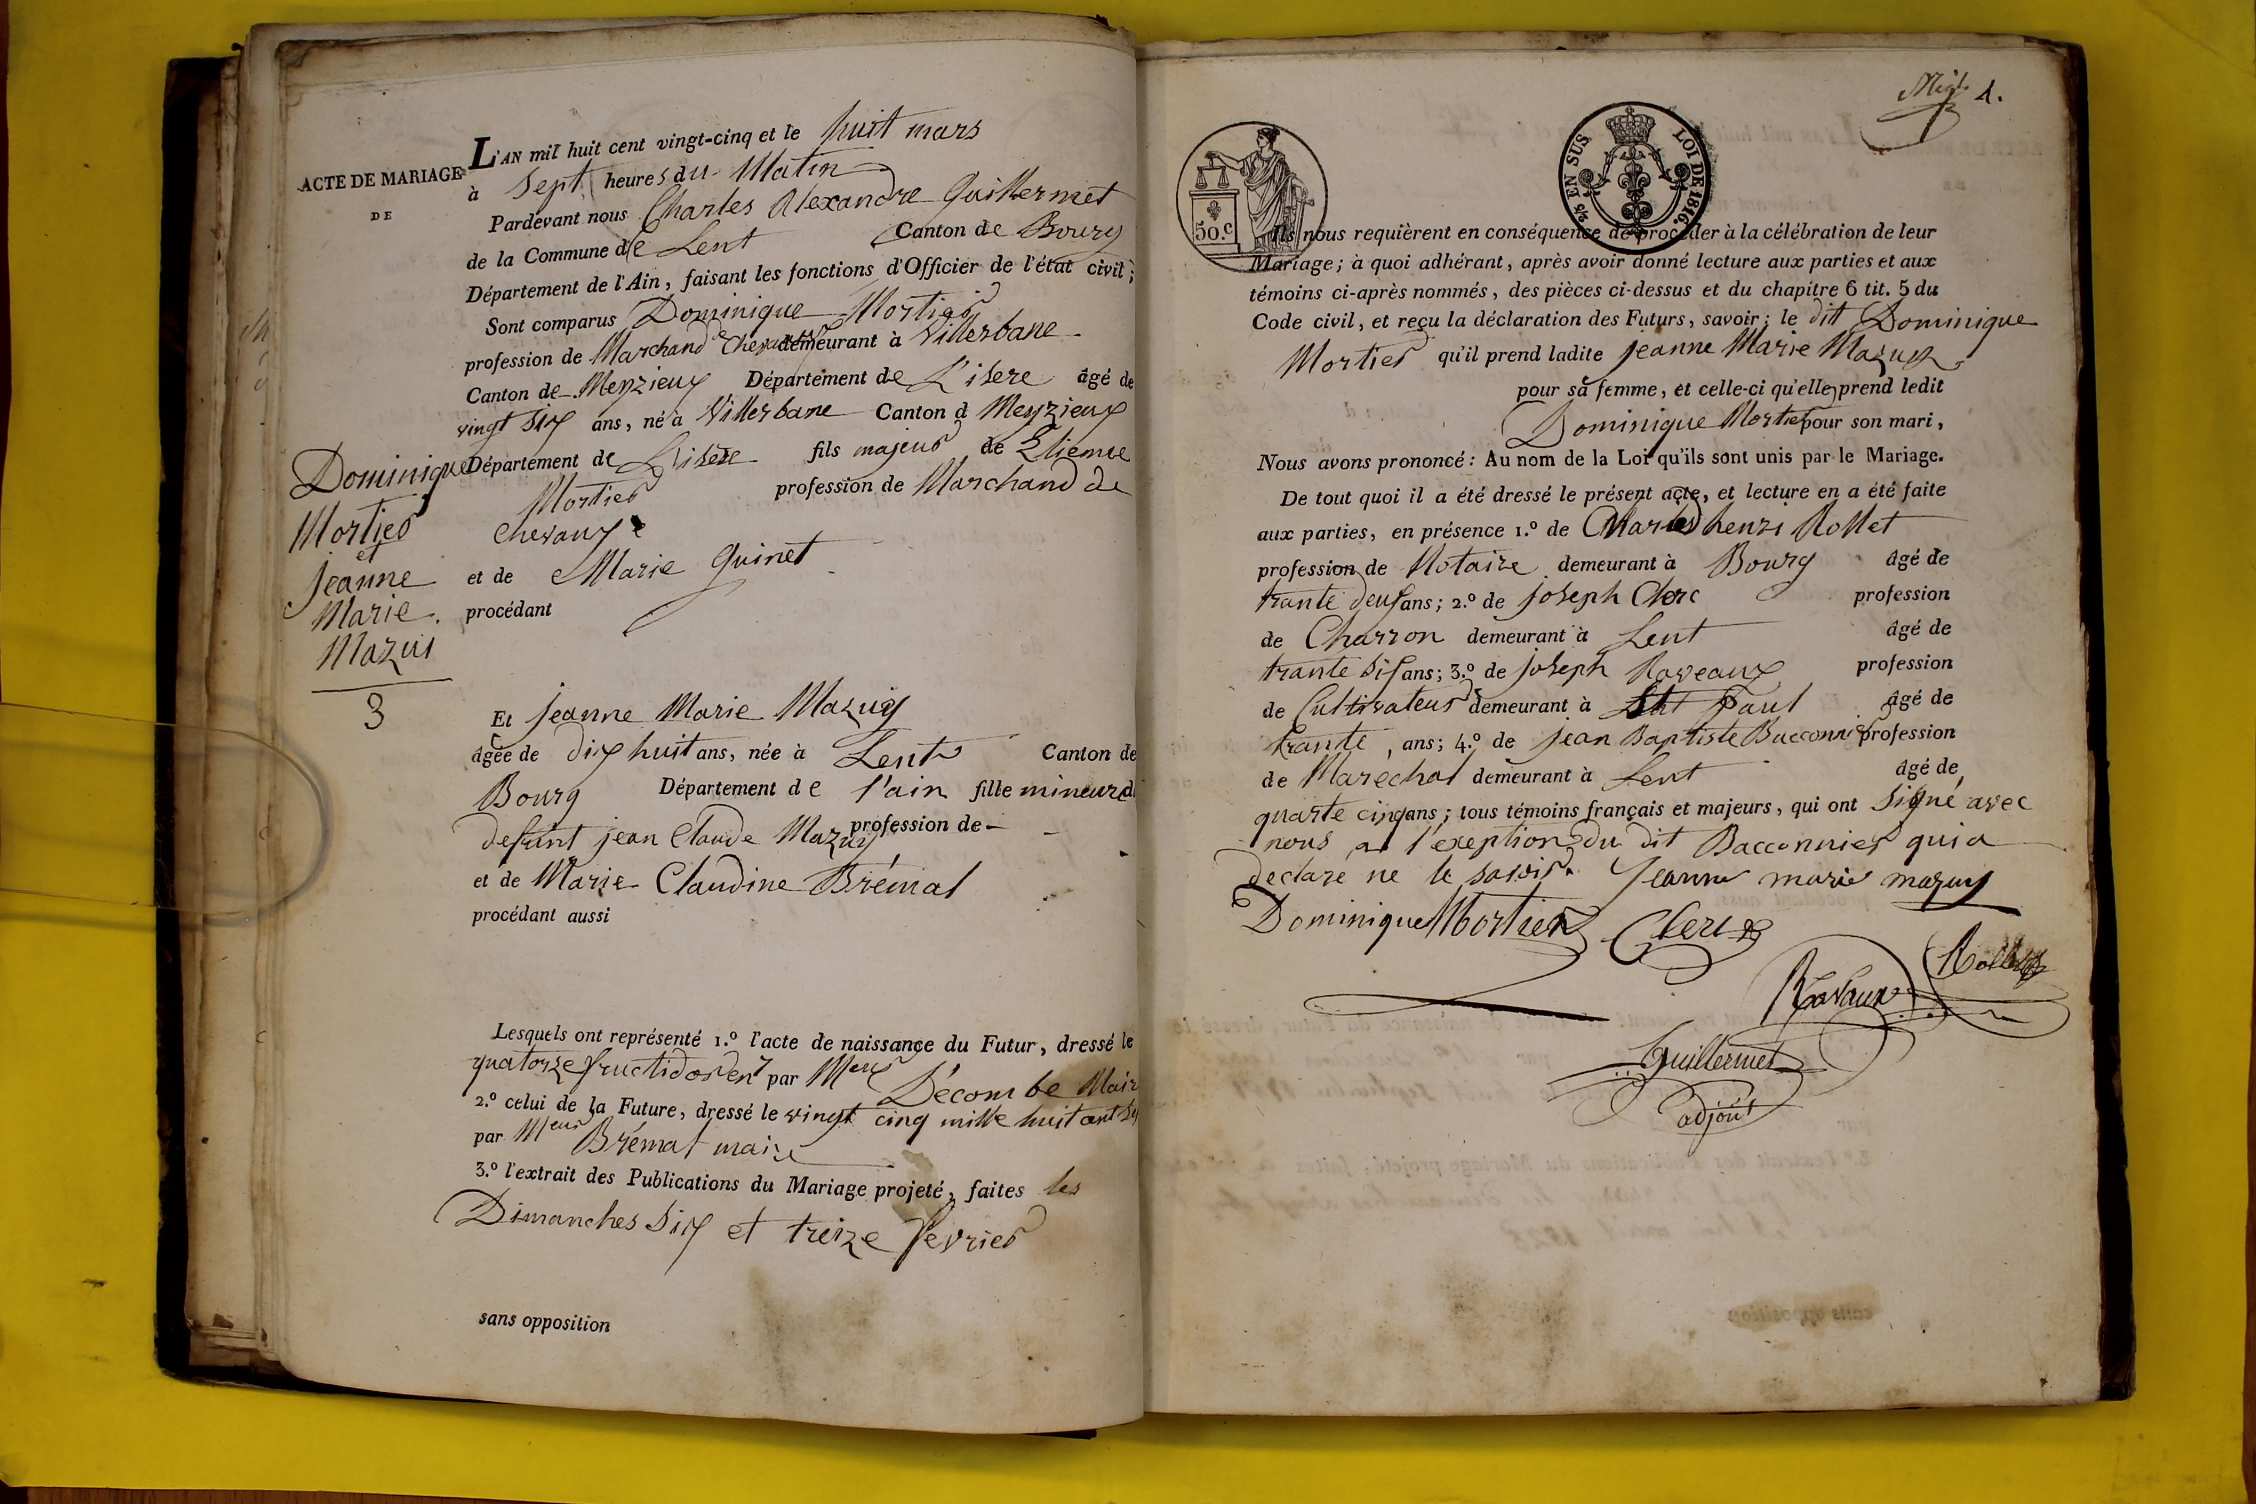 ACTE DE MARIAGE
DE
Dominique
Mortier
et
Jeanne
Marie
Mazuy
3
L'AN mil huit cent vingt-cinq et le huit mars
à Sept heures du Matin
Pardevant nous Charles Alexandre Guillermet
de la Commune de Lent Canton de Bourg
Département de l'Ain, faisant les fonctions d'Officier de l'état civil;
Sont comparus Dominique Mortier
profession de Marchand de Chevaux demeurant à Villerbane
Canton de Meyzieux Département de L'isere âgé de
vingt six ans, né à Villerbane Canton d Meyzieux
Département de L'isere fils majeur de Etienne
Mortier profession de Marchand de
chevaux
et de Marie Guinet
procédant
Et Jeanne Marie Mazuy
âgée de dix huit ans, née à Lent Canton de
Bourg Département de l'ain fille mineure d
defunt jean Claude Mazuy profession de
et de Marie Claudine Brémal
procédant aussi
Lesquels ont représenté 1.º l'acte de naissance du Futur, dressé le
quatorze fructidor en 7 par Meur Décombe Mair
2.º celui de la Future, dressé le vingt cinq mille huit cent
par Meur Brémal maire
3.º l'extrait des Publications du Mariage projeté, faites les
Dimanches six et treize fevrier
sans opposition
4.
50.c
2/5 EN SUS LOI DE 1816.
Ils nous requièrent en conséquence de procéder à la célébration de leur
Mariage; à quoi adhérant, après avoir donné lecture aux parties et aux
témoins ci-après nommés, des pièces ci-dessus et du chapitre 6 tit. 5 du
Code civil, et reçu la déclaration des Futurs, savoir; le dit Dominique
Mortier qu'il prend ladite Jeanne Marie Mazuy
pour sa femme, et celle-ci qu'elle prend ledit
Dominique Mortier pour son mari,
Nous avons prononcé: Au nom de la Loi qu'ils sont unis par le Mariage.
De tout quoi il a été dressé le présent acte, et lecture en a été faite
aux parties, en présence 1.º de Charles henri Rollet
profession de Notaire demeurant à Bourg âgé de
trante deux ans; 2.º de joseph Clerc profession
de Charron demeurant à Lent âgé de
trante six ans; 3.º de joseph Raveaux profession
de Cultivateur demeurant à St Paul âgé de
trante, ans; 4.º de jean Baptiste Bacconnier profession
de Maréchal demeurant à Lent âgé de
quarte cinq ans; tous témoins français et majeurs, qui ont signé avec
nous a l'exeption du dit Bacconnier qui a
declare ne le savoir. Jeanne marie mazuy
Dominique Mortier Clerc
Rollet
Ravaux
Guillermet
adjoint